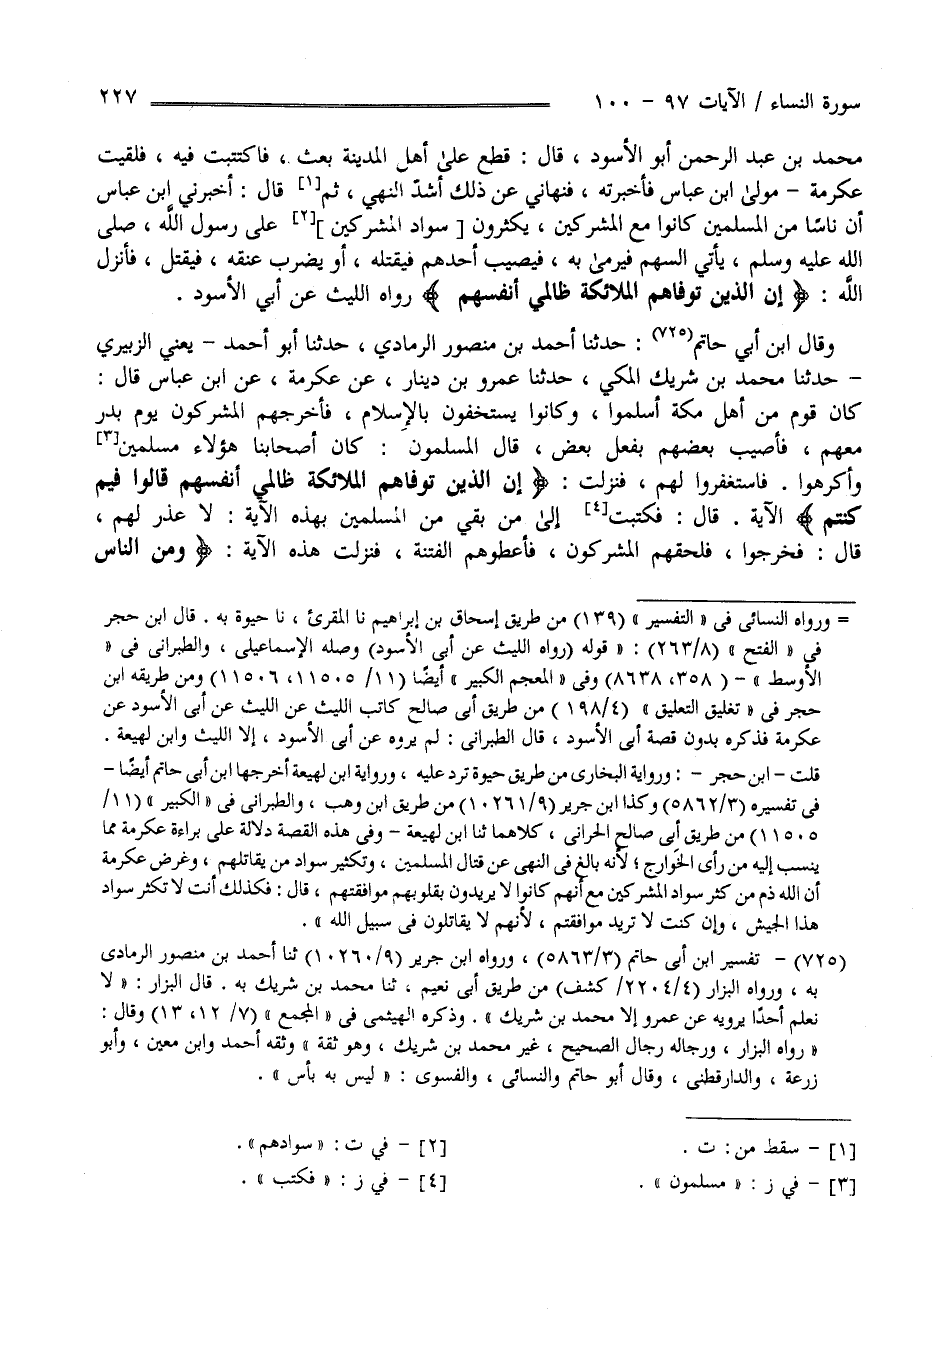 سورة النساء / الآيات ٩٧ - ١٠٠ ٢٢٧
محمد بن عبد الرحمن أبو الأسود ، قال : قطع علىٰ أهل المدينة بعث ، فاكتتبت فيه ، فلقيت
عكرمة - مولىٰ ابن عباس فأخبرته ، فنهاني عن ذلك أشدّ النهي ، ثم[١] قال : أخبرني ابن عباس
أن ناسًا من المسلمين كانوا مع المشركين ، يكثرون [ سواد المشركين ][٢] على رسول اللَّه ، صلى
الله عليه وسلم ، يأتي السهم فيرمىٰ به ، فيصيب أحدهم فيقتله ، أو يضرب عنقه ، فيقتل ، فأنزل
اللَّه : ﴿ إن الذين توفاهم الملائكة ظالمي أنفسهم ﴾ رواه الليث عن أبي الأسود .
وقال ابن أبي حاتم(٧٢٥) : حدثنا أحمد بن منصور الرمادي ، حدثنا أبو أحمد - يعني الزبيري
- حدثنا محمد بن شريك المكي ، حدثنا عمرو بن دينار ، عن عكرمة ، عن ابن عباس قال :
كان قوم من أهل مكة أسلموا ، وكانوا يستخفون بالإسلام ، فأخرجهم المشركون يوم بدر
معهم ، فأصيب بعضهم بفعل بعض ، قال المسلمون : كان أصحابنا هؤلاء مسلمين[٣]
وأكرهوا . فاستغفروا لهم ، فنزلت : ﴿ إن الذين توفاهم الملائكة ظالمي أنفسهم قالوا فيم
كنتم ﴾ الآية . قال : فكتبت[٤] إلىٰ من بقي من المسلمين بهذه الآية : لا عذر لهم ،
قال : فخرجوا ، فلحقهم المشركون ، فأعطوهم الفتنة ، فنزلت هذه الآية : ﴿ ومن الناس
= ورواه النسائى فى « التفسير » (١٣٩) من طريق إسحاق بن إبراهيم نا المقرئ ، نا حيوة به . قال ابن حجر
فى « الفتح » (٢٦٣/٨) : « قوله (رواه الليث عن أبى الأسود) وصله الإسماعيلى ، والطبرانى فى «
الأوسط » - ( ٣٥٨، ٨٦٣٨) وفى « المعجم الكبير » أيضًا (١١/ ١١٥٠٥، ١١٥٠٦) ومن طريقه ابن
حجر فى « تغليق التعليق » (١٩٨/٤ ) من طريق أبى صالح كاتب الليث عن الليث عن أبى الأسود عن
عكرمة فذكره بدون قصة أبى الأسود ، قال الطبرانى : لم يروه عن أبى الأسود ، إلا الليث وابن لهيعة .
قلت - ابن حجر - : ورواية البخارى من طريق حيوة ترد عليه ، ورواية ابن لهيعة أخرجها ابن أبى حاتم أيضًا -
فى تفسيره (٥٨٦٢/٣) وكذا ابن جرير (١٠٢٦١/٩) من طريق ابن وهب ، والطبرانى فى « الكبير » (١١/
١١٥٠٥) من طريق أبى صالح الحرانى ، كلاهما ثنا ابن لهيعة - وفى هذه القصة دلالة على براءة عكرمة مما
ينسب إليه من رأى الخوارج ؛ لأنه بالغ فى النهى عن قتال المسلمين ، وتكثير سواد من يقاتلهم ، وغرض عكرمة
أن الله ذم من كثر سواد المشركين مع أنهم كانوا لا يريدون بقلوبهم موافقتهم ، قال : فكذلك أنت لا تكثر سواد
هذا الجيش ، وإن كنت لا تريد موافقتم ، لأنهم لا يقاتلون فى سبيل الله » .
(٧٢٥) - تفسير ابن أبى حاتم (٥٨٦٣/٣) ، ورواه ابن جرير (١٠٢٦٠/٩) ثنا أحمد بن منصور الرمادى
به ، ورواه البزار (٢٢٠٤/٤/ كشف) من طريق أبى نعيم ، ثنا محمد بن شريك به . قال البزار : « لا
نعلم أحدًا يرويه عن عمرو إلا محمد بن شريك » . وذكره الهيثمى فى « المجمع » (٧/ ١٢، ١٣) وقال :
« رواه البزار ، ورجاله رجال الصحيح ، غير محمد بن شريك ، وهو ثقة » وثقه أحمد وابن معين ، وأبو
زرعة ، والدارقطنى ، وقال أبو حاتم والنسائى ، والفسوى : « ليس به بأس » .
[١] - سقط من : ت . [٢] - في ت : « سوادهم » .
[٣] - في ز : « مسلمون » . [٤] - في ز : « فكتب » .